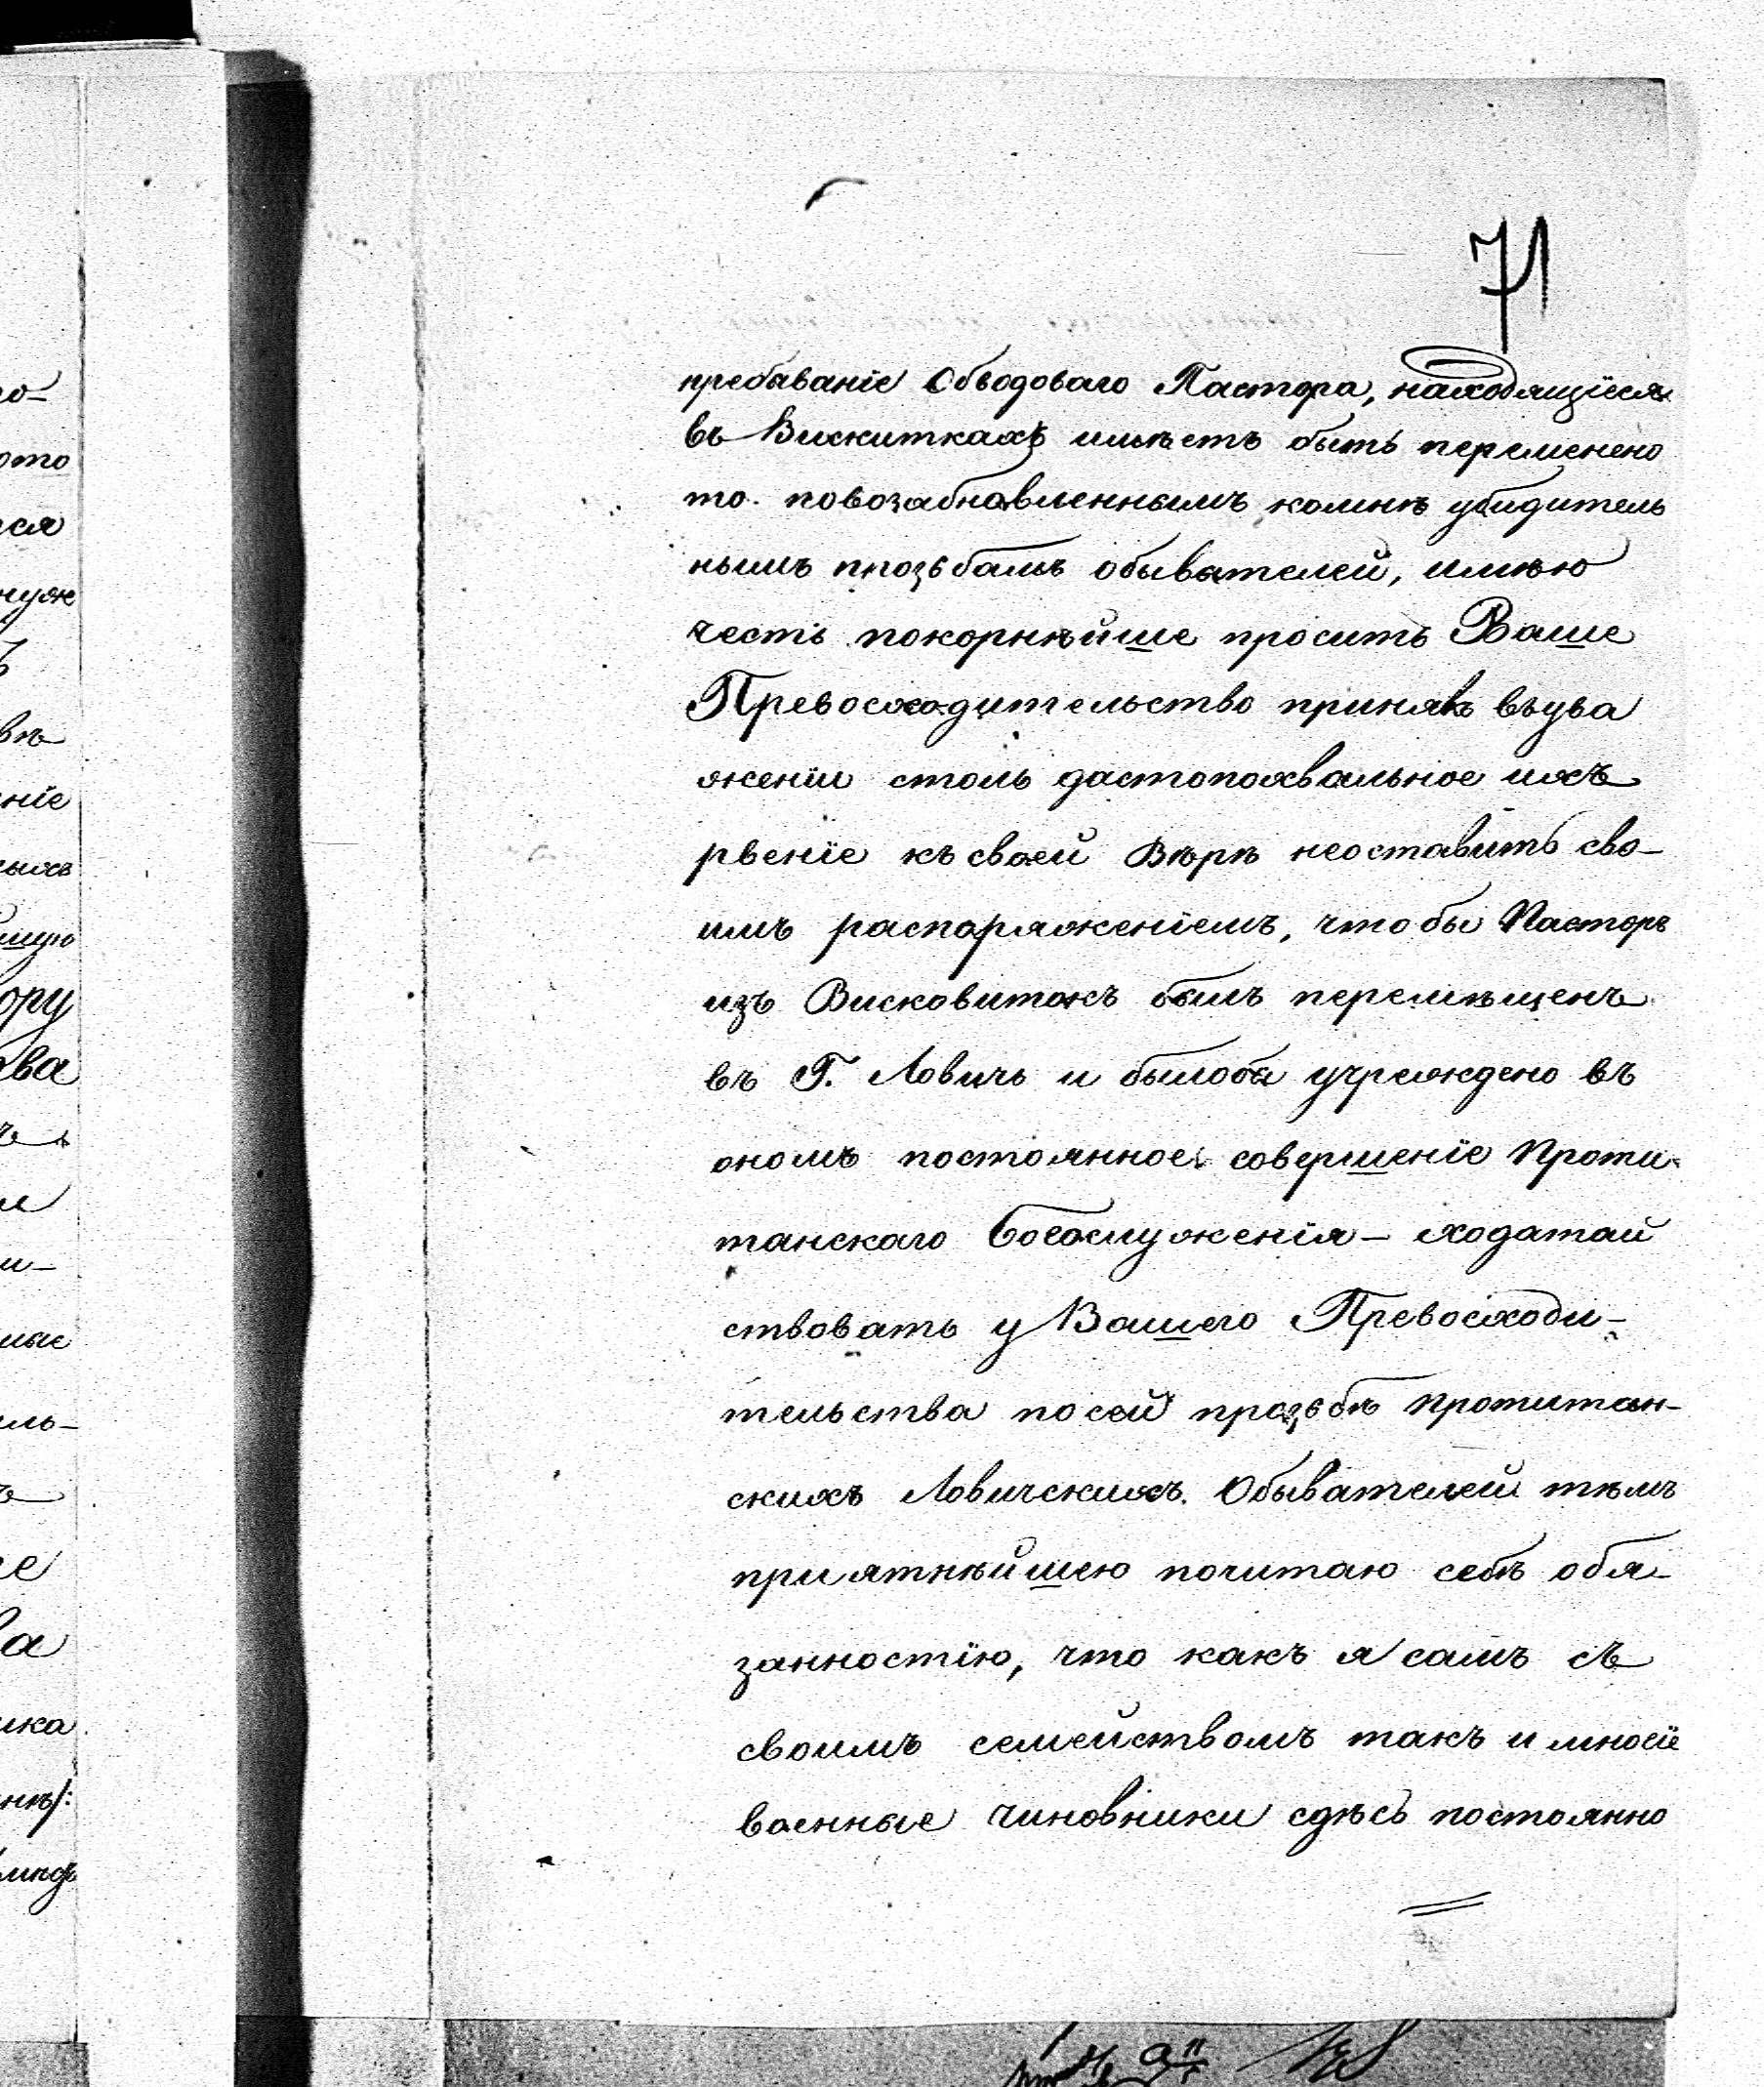 71
пребываніе Обводоваго Пастора, находящіеся
въ Вискиткахъ имѣетъ быть переменено
то. повозабновленнымъ комнѣ убидитель
нымъ прозьбамъ обывателей, имѣю
честь покорнѣйше просить Ваше
Превосходительство принявъ въува
женіи столь дастопохвальное ихъ
рвеніе къ своей Вѣрѣ неоставить сво-
имъ распоряженіемъ, что бы Пасторъ
изъ Висковитокъ былъ перемѣщенъ
въ Г. Ловичь и былобы учреждено въ
ономъ постоянное совершеніе Проти-
танскаго богослуженія – ходатай
ствовать у Вашего Превосходи-
тельства по сей прозьбѣ протитан-
скихъ Ловичскихъ Обывателей тѣмъ
приятнѣйшею почитаю себѣ обя-
занностію, что какъ я самъ съ
своимъ семействомъ такъ и многіе
военные чиновники сдѣсь постоянно